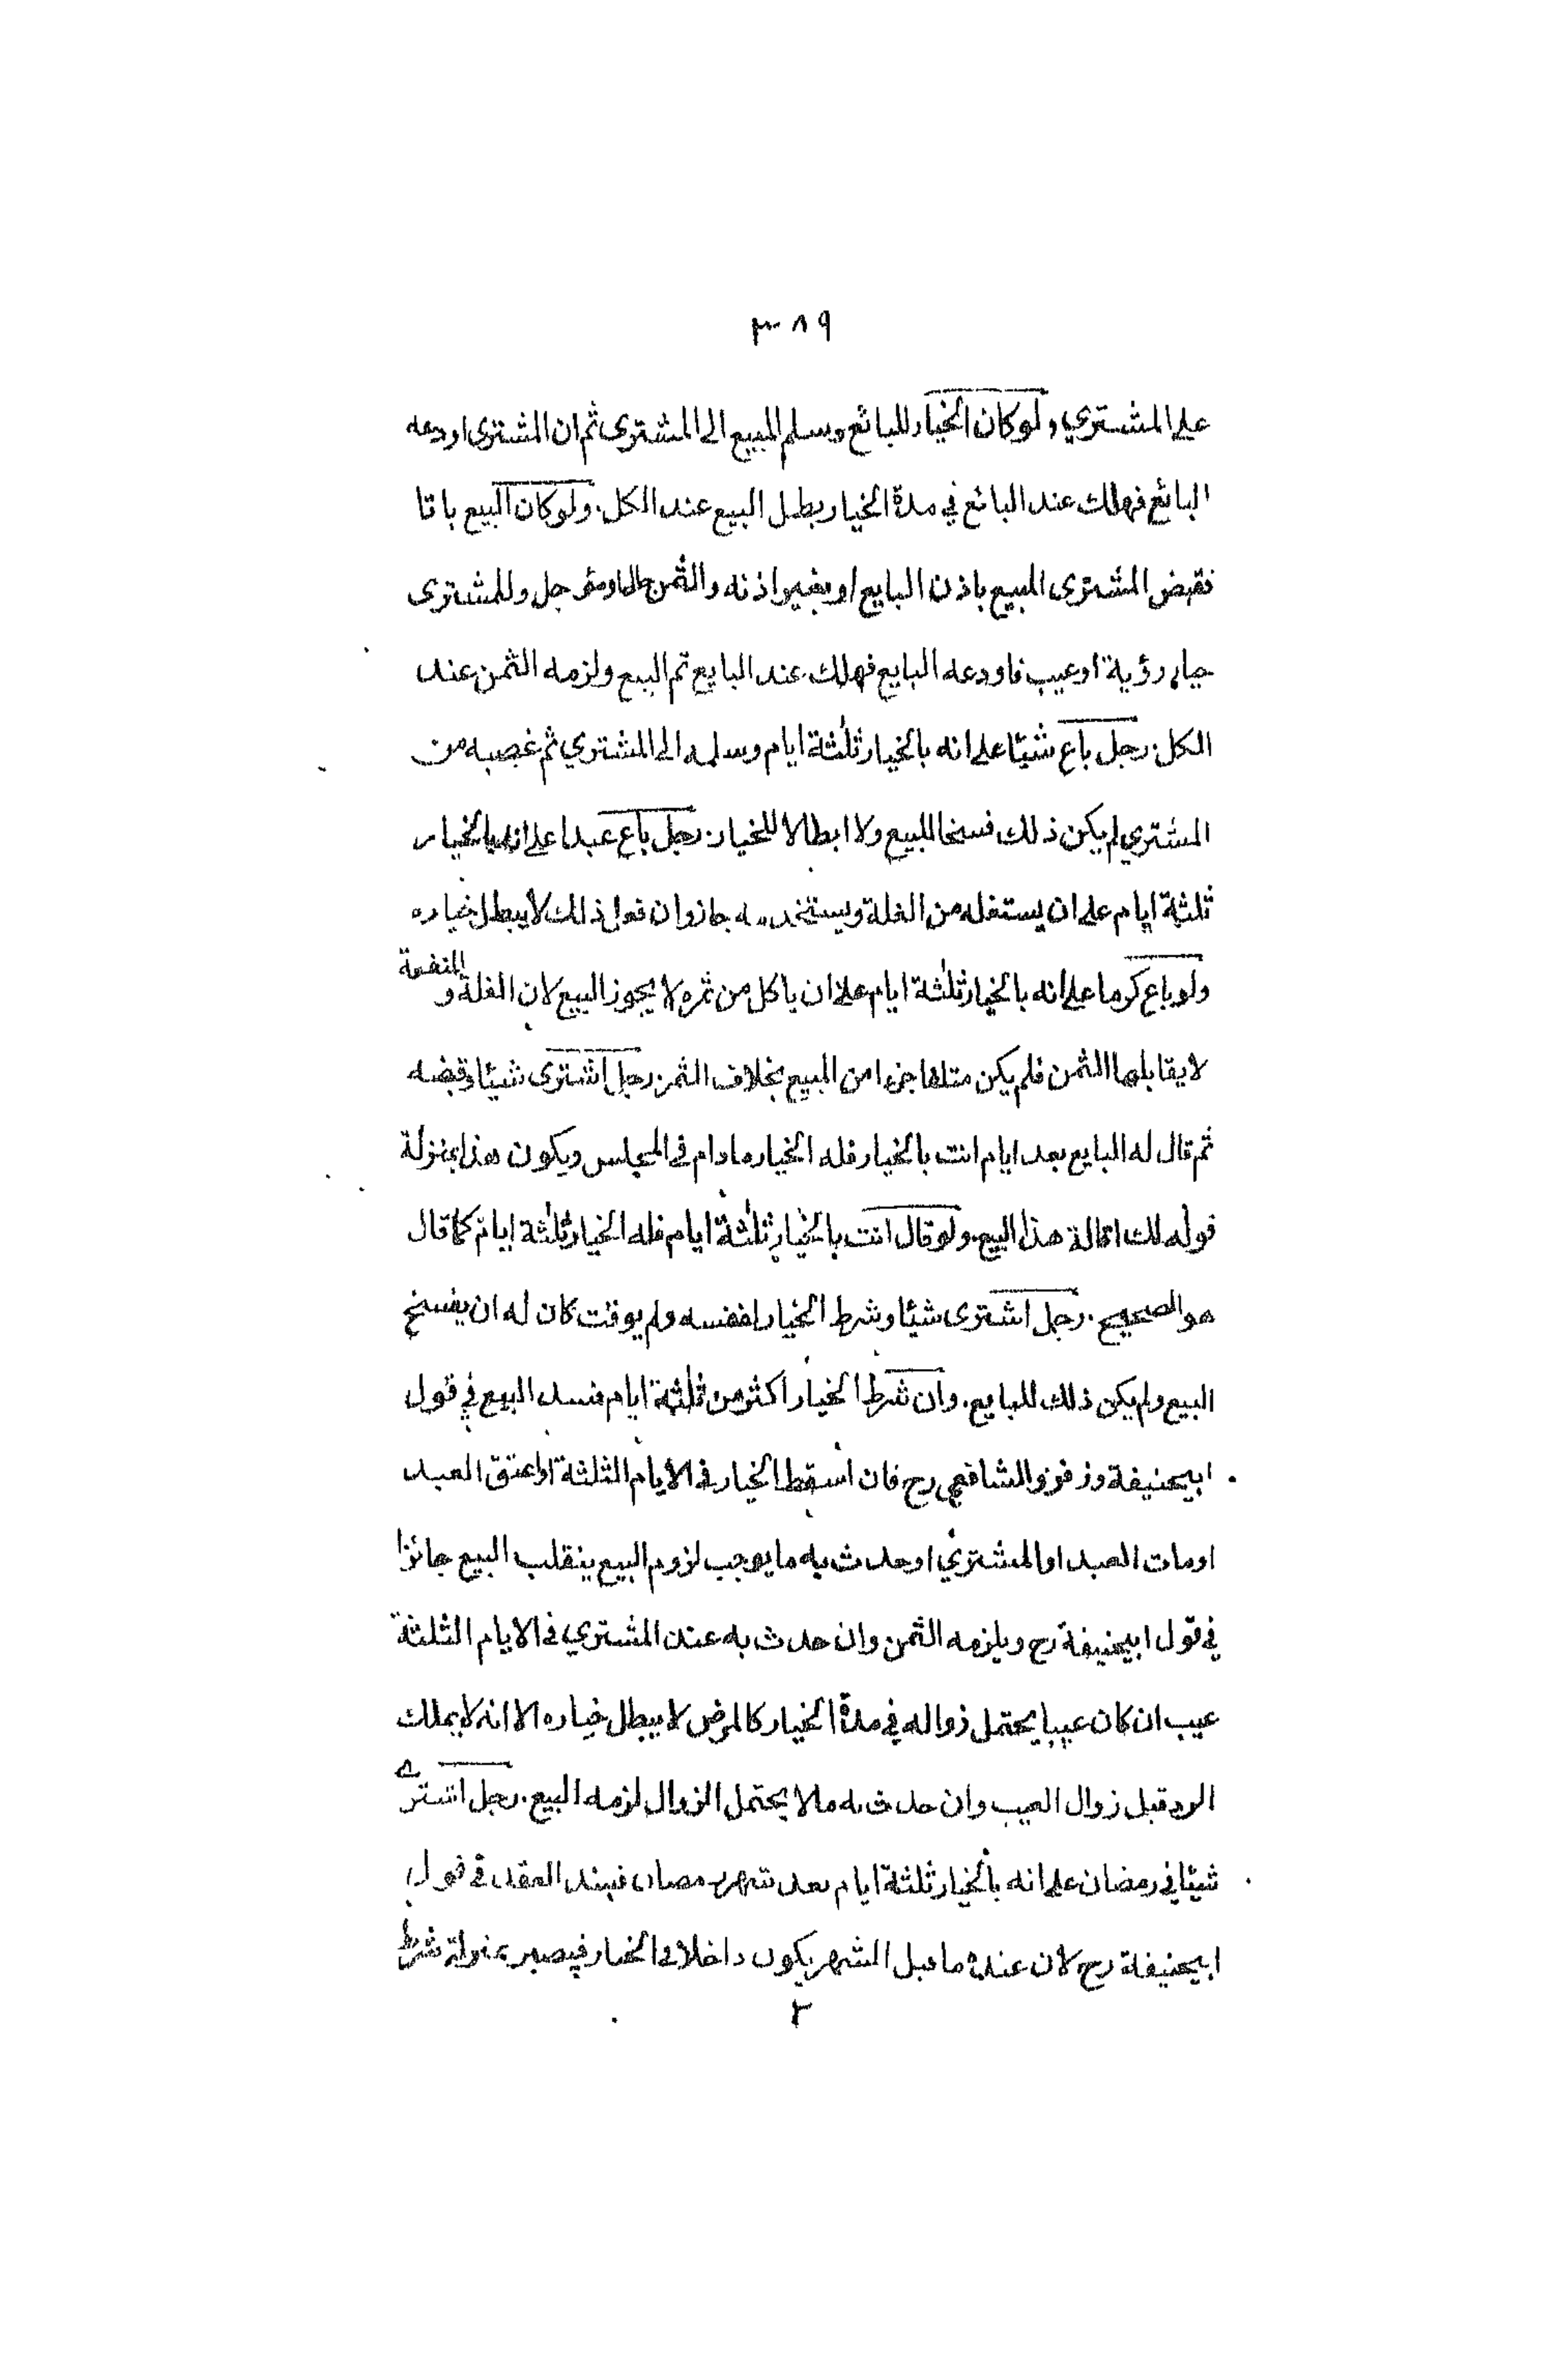 ٣٨٩
على المشتري ولو كان الخيار للبائع وسلم المبيع الى المشترى ثم ان المشترى اودعه
البائع فهلك عند البائع في مدة الخيار بطل البيع عند الكل. ولو كان البيع باتا
فقبض المشترى المبيع باذن البايع او بغير اذنه والثمن حال او مؤجل وللمشترى
خيار رؤية او عيب فاودعه البايع فهلك عند البايع تم البيع ولزمه الثمن عند
الكل. رجل باع شيئا على انه بالخيار ثلثة ايام وسلمه الى المشتري ثم غصبه من
المشتري لم يكن ذلك فسخا للبيع ولا ابطالا للخيار. رجل باع عبدا على انه بالخيار
ثلثة ايام على ان يستغله من الغلة ويستخدمه جاز وان فعل ذلك لا يبطل خياره
ولو باع كرما على انه بالخيار ثلثة ايام على ان ياكل من ثمره لا يجوز البيع لان الغلة و المنفعة
لا يقابلها الثمن فلم يكن متلفا جزءا من المبيع بخلاف الثمر. رجل اشترى شيئا وقبضه
ثم قال له البايع بعد ايام انت بالخيار فله الخيار مادام في المجلس ويكون هذا بمنزلة
قوله لك اقالة هذا البيع. ولو قال انت بالخيار ثلثة ايام فله الخيار ثلثة ايام كما قال
هو الصحيح. رجل اشترى شيئا وشرط الخيار لنفسه ولم يوقت كان له ان يفسخ
البيع ولم يكن ذلك للبايع. وان شرط الخيار اكثر من ثلثة ايام فسد البيع في قول
ابيحنيفة وزفر والشافعي رح فان اسقط الخيار في الايام الثلثة او اعتق العبد
اومات العبد او المشتري او حدث به ما يوجب لزوم البيع ينقلب البيع جائزا
في قول ابيحنيفة رح ويلزمه الثمن وان حدث به عند المشتري في الايام الثلثة
عيب ان كان عيبا يحتمل زواله في مدة الخيار كالمرض لا يبطل خياره الا انه لا يملك
الرد قبل زوال العيب وان حدث به ما لا يحتمل الزوال لزمه البيع. رجل اشترى
شيئا في رمضان على انه بالخيار ثلثة ايام بعد شهر رمضان فسد العقد في قول
ابيحنيفة رح لان عنده ما قبل الشهر يكون داخلا في الخيار فيصير بمنزلة شرط
٢